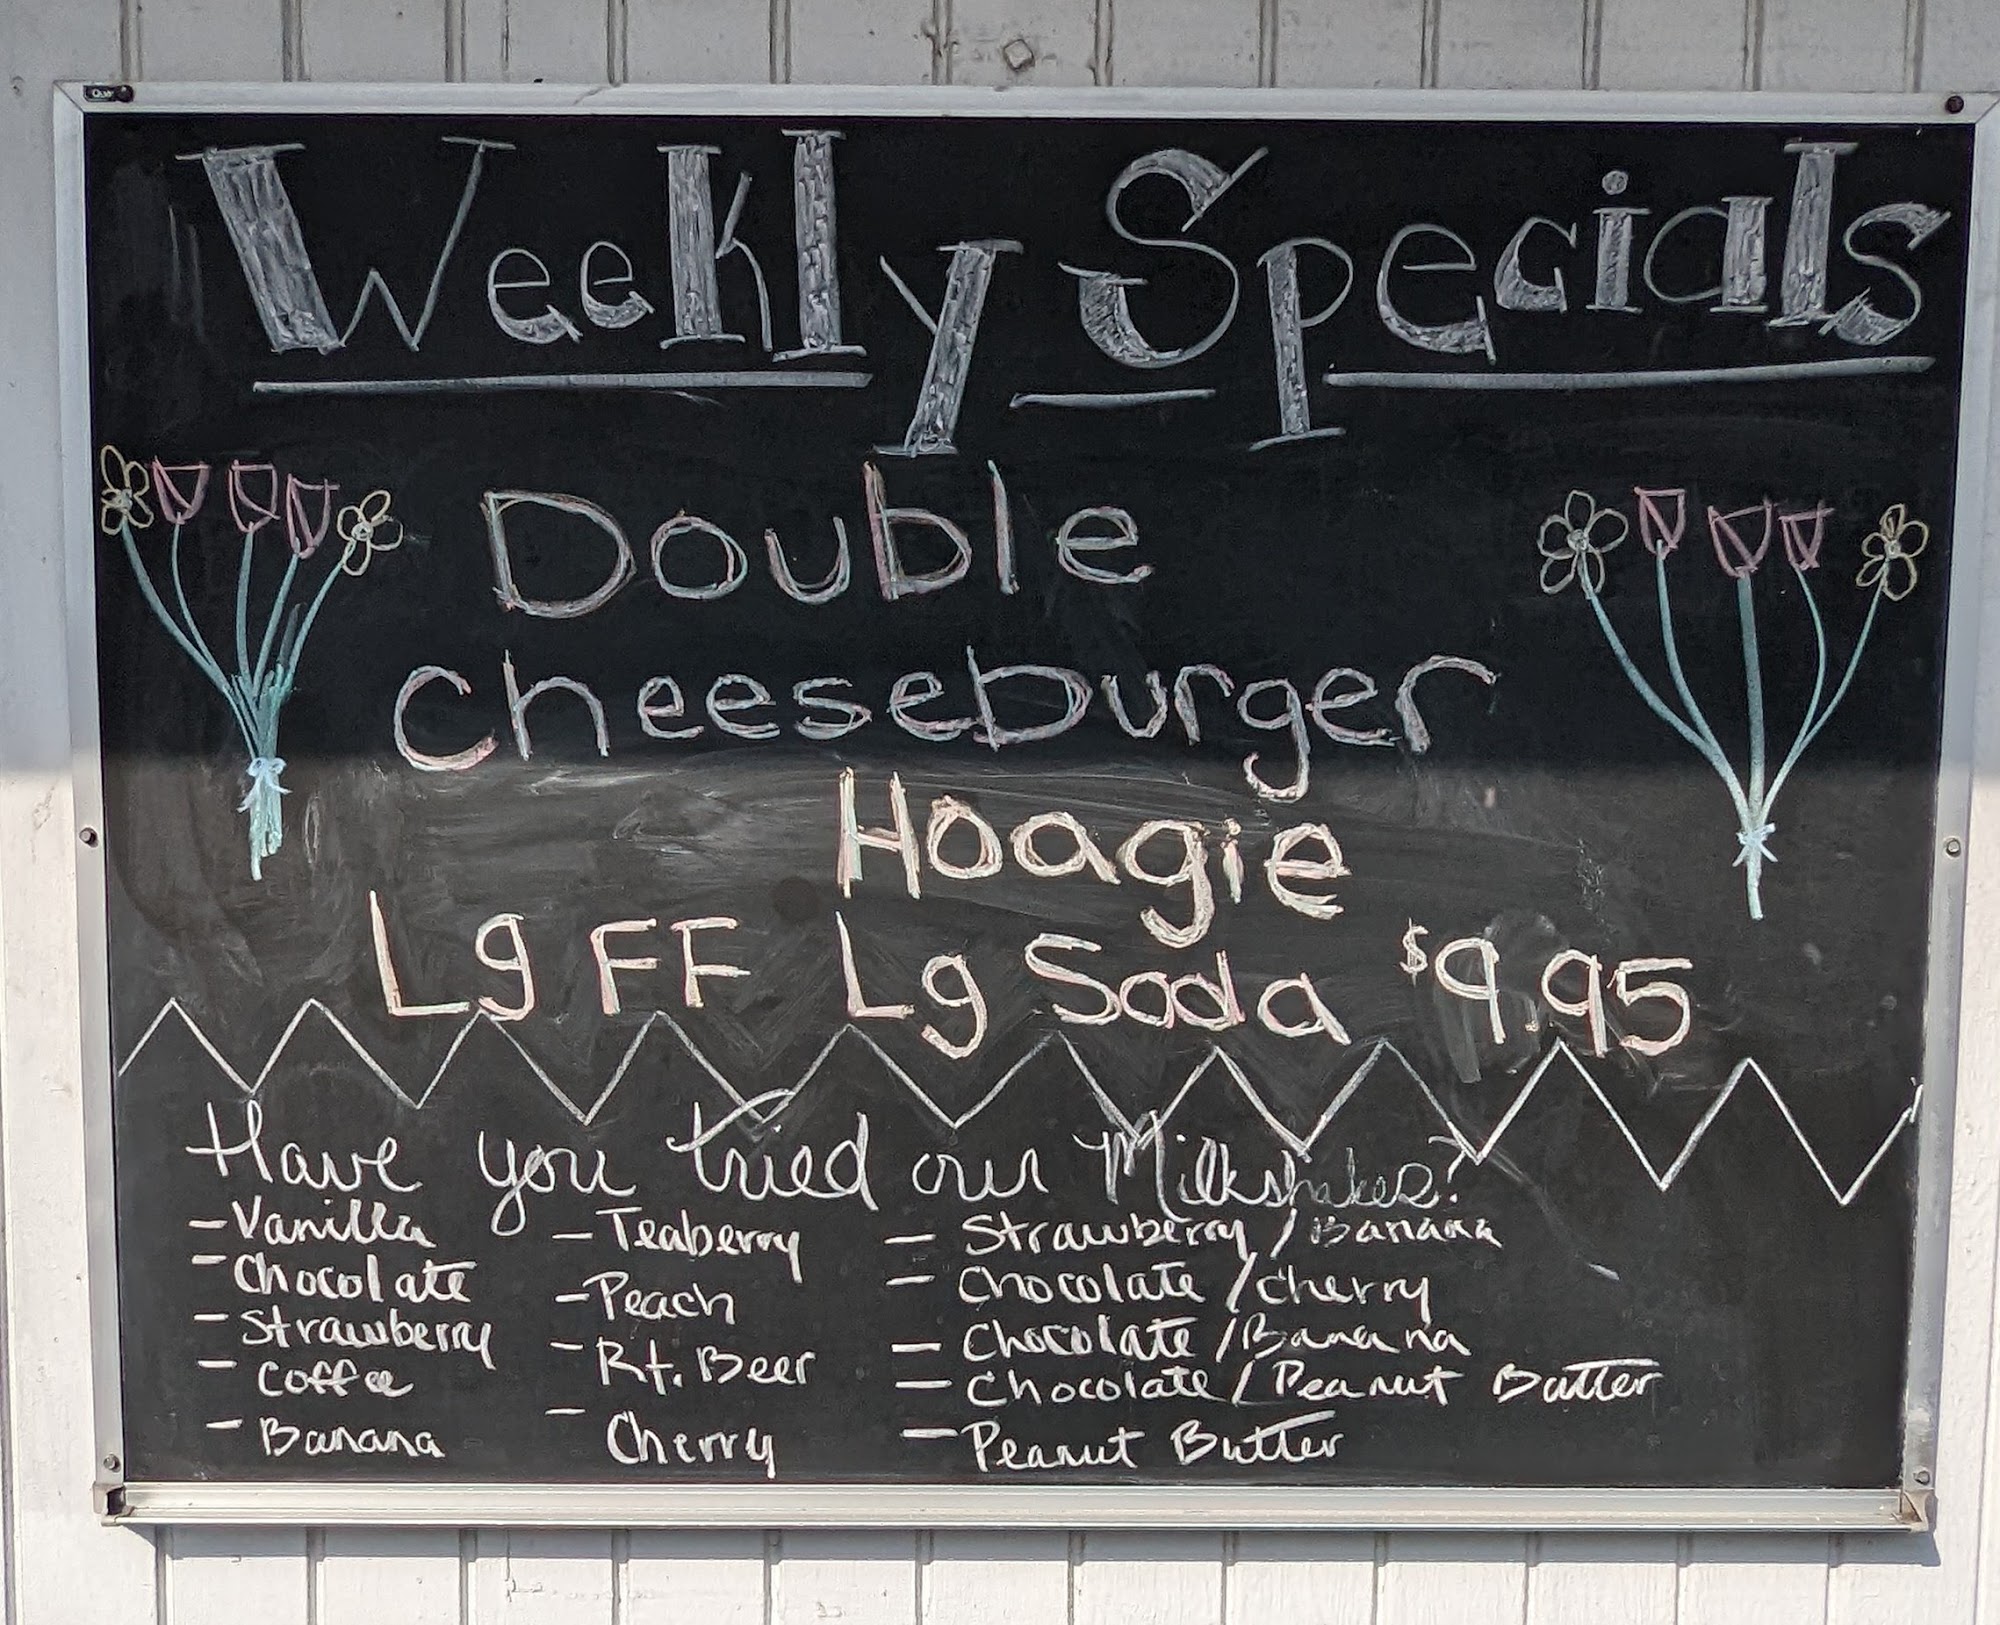 Weekly Specials
Double
Cheeseburger
Hoagie
Lg FF Lg Soda $9.95
Have you tried our Milkshakes?
- Vanilla
- Chocolate
- Strawberry
- Coffee
- Banana
- Teaberry
- Peach
- Rt. Beer
- Cherry
- Strawberry / Banana
- Chocolate / Cherry
- Chocolate / Banana
- Chocolate / Peanut Butter
- Peanut Butter